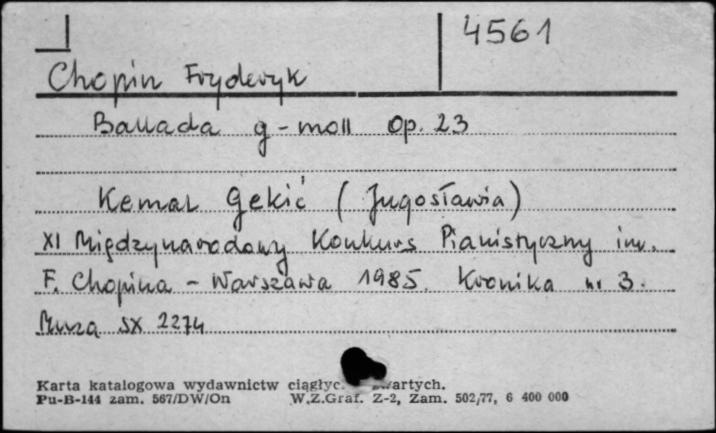 4561
Chopin Fryderyk
Ballada g-moll Op. 23
Kemal Gekić (Jugosławia)
XI Międzynarodowy Konkurs Pianistyczny im.
F. Chopina - Warszawa 1985. Kronika nr 3.
Muza SX 2274
Karta katalogowa wydawnictw ciągłyc. wartych.
Pu-B-144 zam. 567/DW/On W.Z.Graf. Z-2, Zam. 502/77, 6 400 000